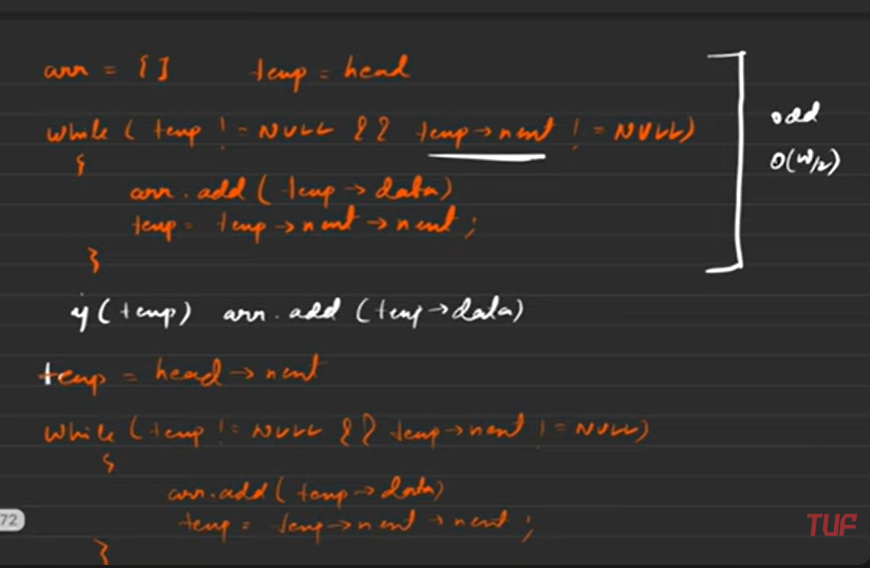 arr = [ ] temp = head
while ( temp != NULL && temp → next != NULL)
{
arr.add ( temp → data)
temp = temp → next → next ;
}
odd
O(N/2)
if (temp) arr.add (temp → data)
temp = head → next
while (temp != NULL && temp → next != NULL)
{
arr.add ( temp → data)
temp = temp → next → next ;
}
72
TUF